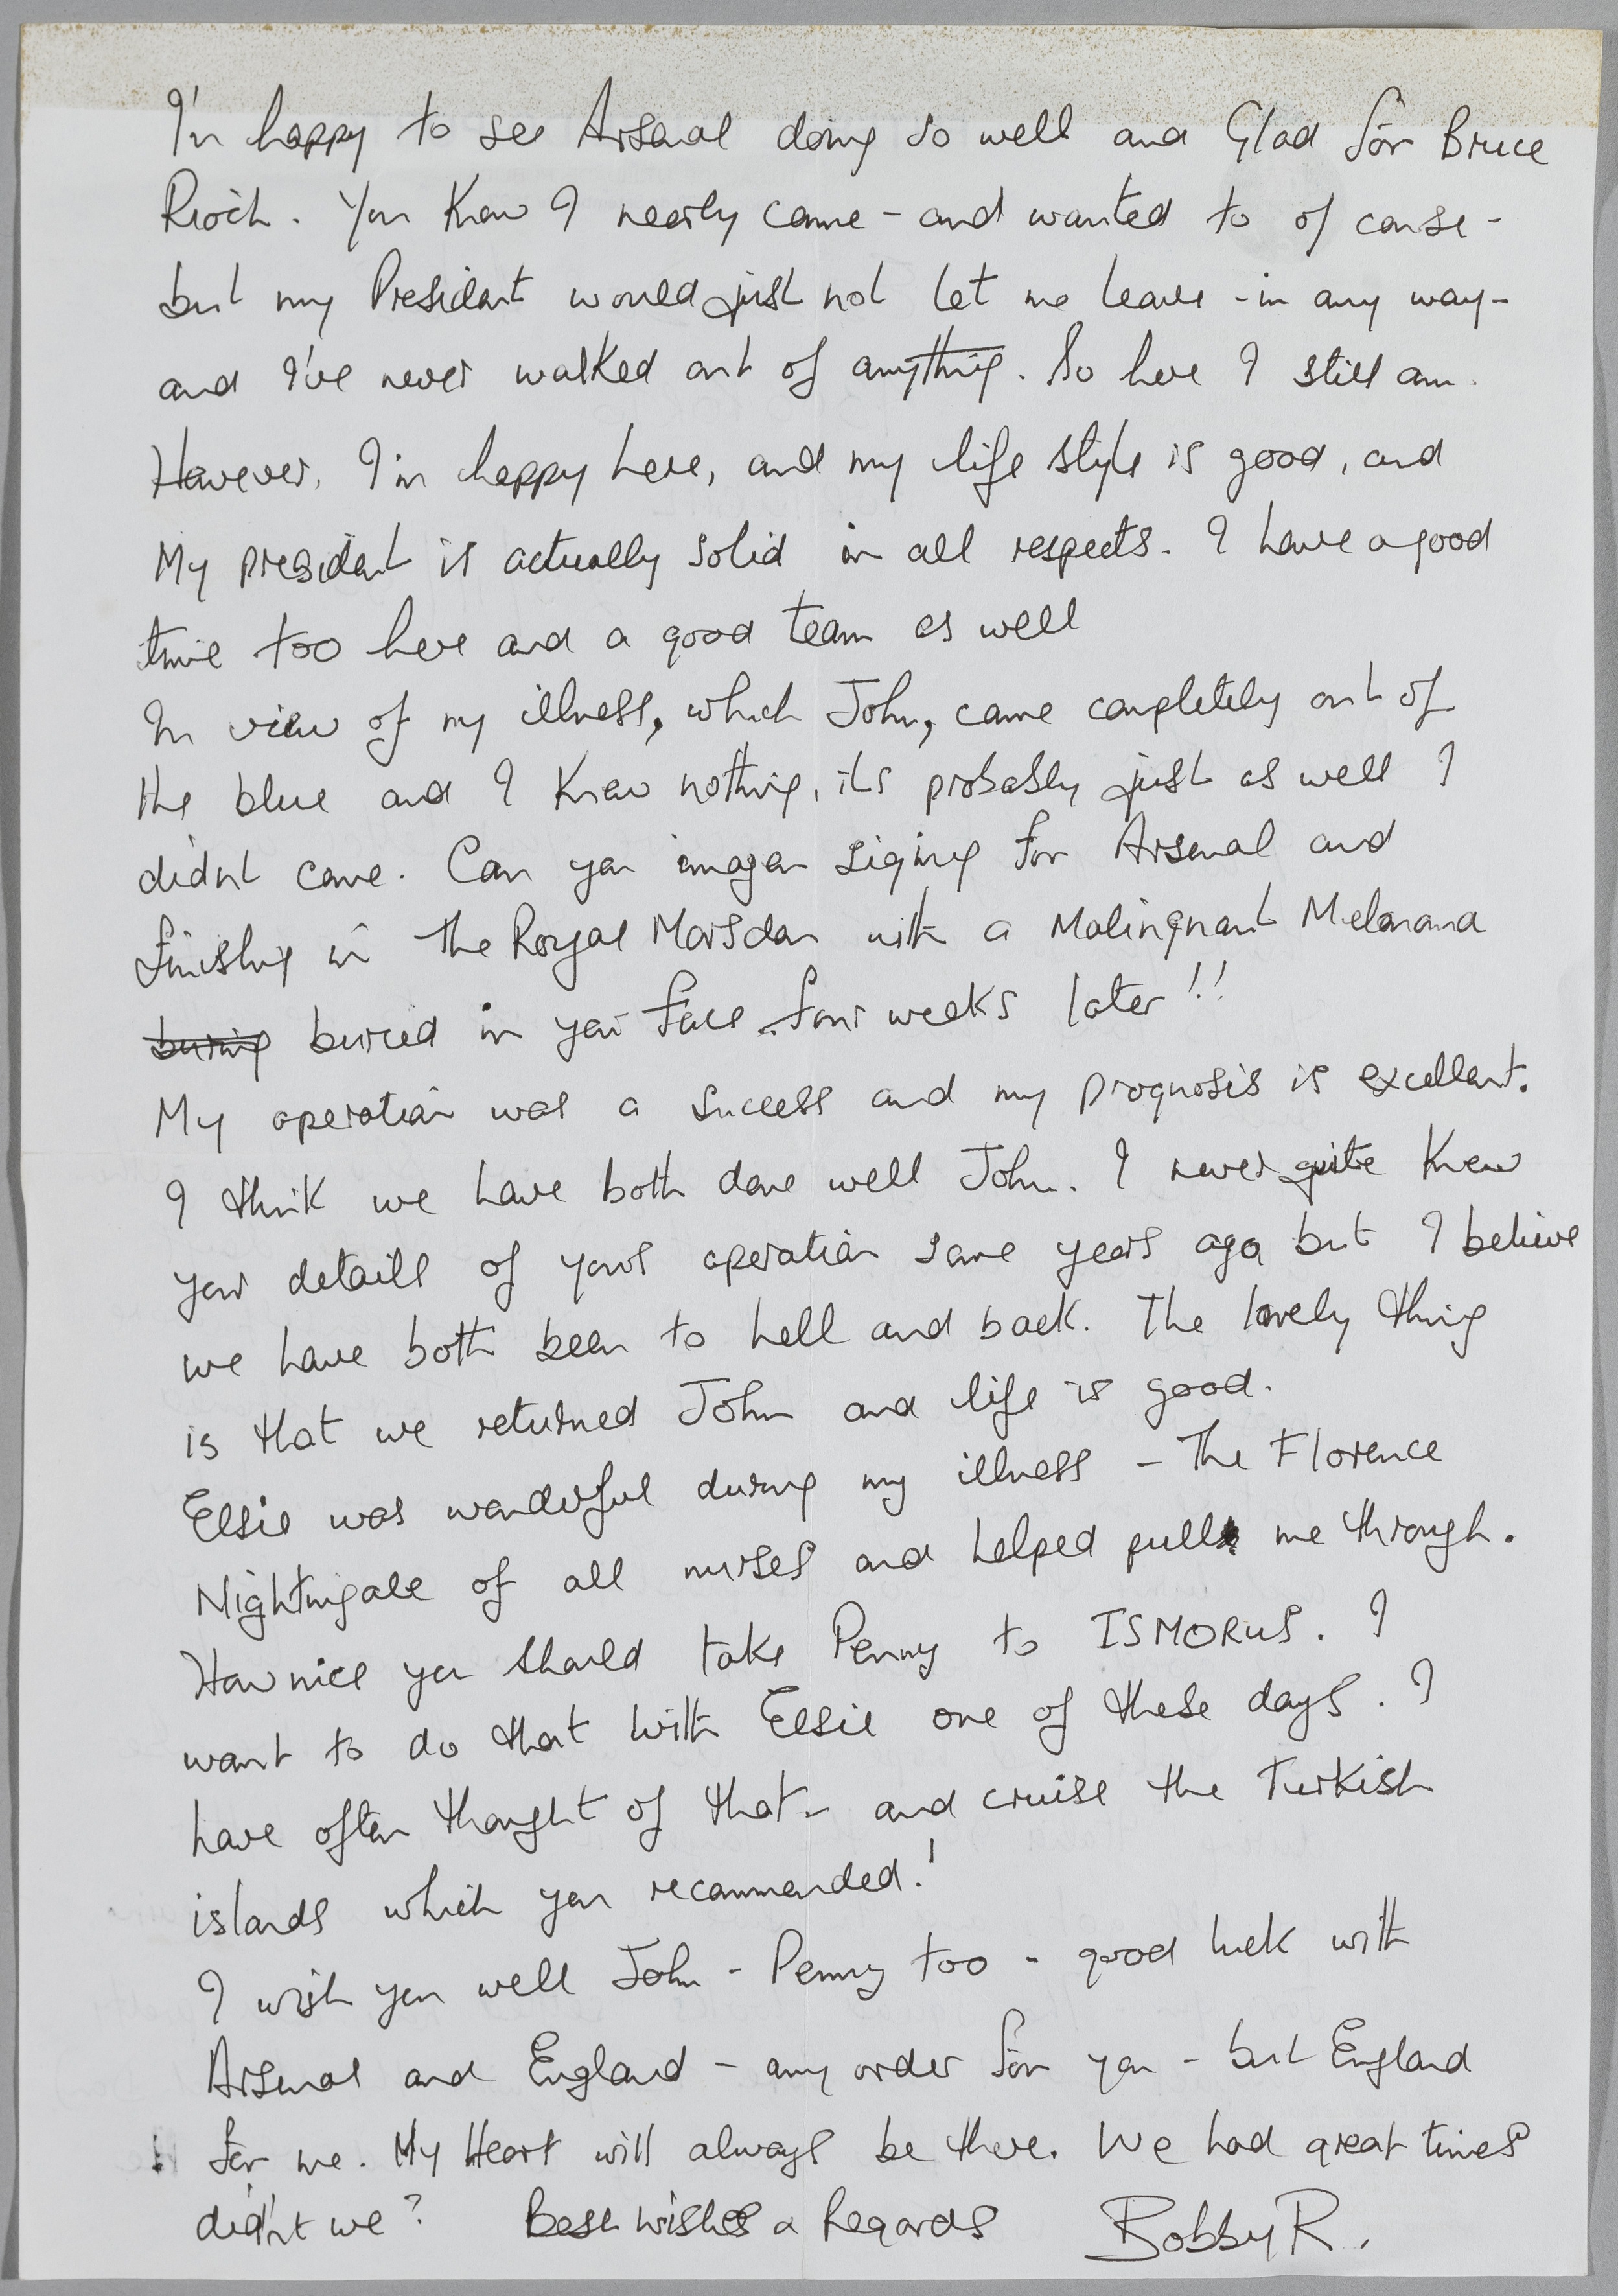 I'm happy to see Arsenal doing so well and Glad for Bruce
Rioch. You know I nearly came - and wanted to of course -
but my President would just not let me leave - in any way -
and I've never walked out of anything. So here I still am.
However, I'm happy here, and my life style is good, and
My president is actually solid in all respects. I have a good
time too here and a good team as well
In view of my illness, which John, came completely out of
the blue and I knew nothing, its probably just as well I
didnt come. Can you imagen signing for Arsenal and
finishing in The Royal Marsdan with a Malingnant Melanama
buring buired in your face four weeks later!!
My operation was a success and my prognosis is excellent.
I think we have both done well John. I never quite knew
your details of yours operation some years ago but I believe
we have both been to hell and back. The lovely thing
is that we returned John and life is good.
Elsie was wonderful during my illness - The Florence
Nightingale of all nurses and helped pull me through.
How nice you should take Penny to ISMORUS. I
want to do that with Elsie one of these days. I
have often thought of that - and cruise the Turkish
islands which you recommended!
I wish you well John - Penny too - good luck with
Arsenal and England - any order for you - but England
for me. My Heart will always be there. We had great times
didn't we? Best wishes & Regards Bobby R.